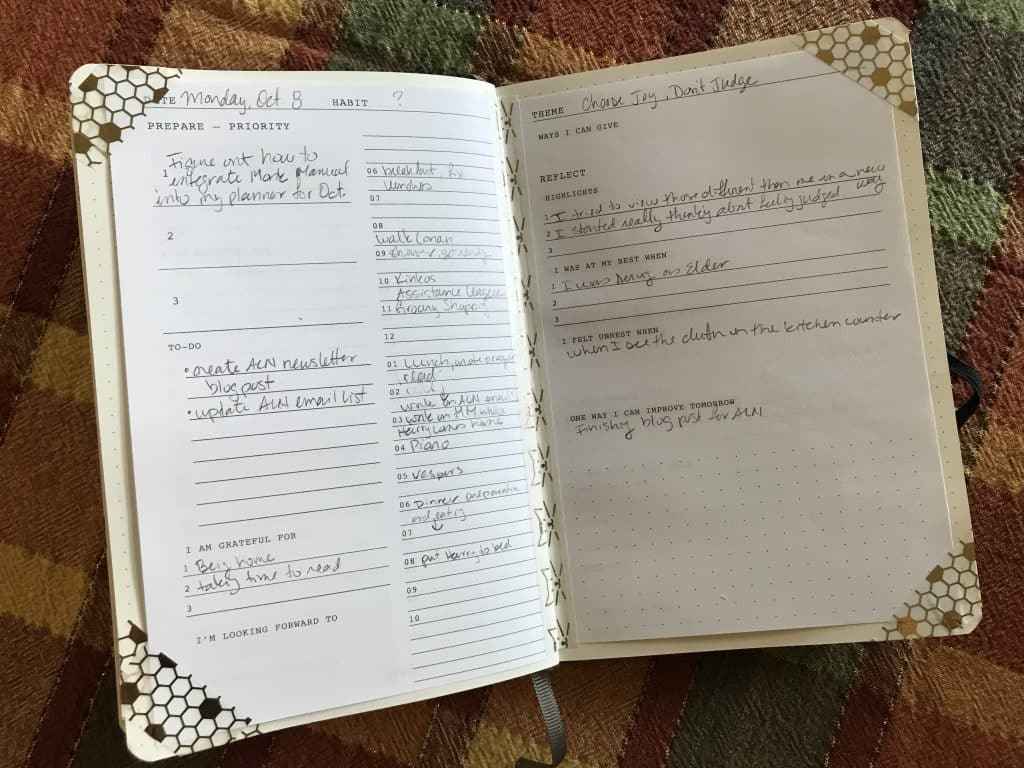 DATE Monday, Oct 8 HABIT ?
PREPARE — PRIORITY
1 Figure out how to
integrate Mark Manual
into my planner for Oct.
2
3
TO-DO
• create ALN newsletter
blog post
• update ALN email list
I AM GRATEFUL FOR
1 Being home
2 taking time to read
3
I'M LOOKING FORWARD TO
06 breakfast, fix
lunches
07
08
walk Conan
09 shower, get ready
10 Kinkos
Assistance League
11 Grocery Shopping
12
01 Lunch, write
read
02
work on ALN email
03 work on MM while
Harry comes home
04 Piano
05 Vespers
06 Dinner preparation
and eating
07
08 put Harry to bed
09
10
THEME Choose Joy, Don't Judge
WAYS I CAN GIVE
REFLECT
HIGHLIGHTS
1 I tried to view those different than me in a new
way
2 I started really thinking about feeling judged.
3
I WAS AT MY BEST WHEN
1 I was being an Elder
2
3
I FELT UNREST WHEN
when I see the clutter on the kitchen counter
ONE WAY I CAN IMPROVE TOMORROW
Finishing blog post for ALN